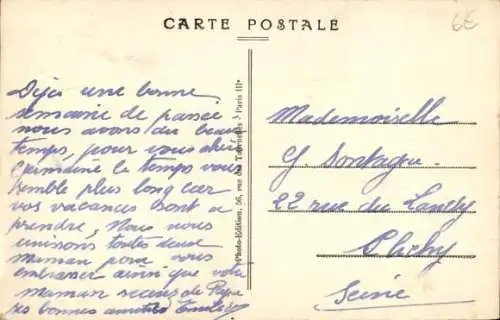 CARTE POSTALE
6E
Déjà une bonne
semaine de passée
nous avons du beau
temps, pour vous chère
le temps vous
semble plus long car
vos vacances sont à
prendre, Nous nous
unissons toutes deux
maman pour vous
embrasser ainsi que votre
maman recevez de
ses bonnes amitiés
Photo-Edition, 56, rue des Tournelles - Paris III•
Mademoiselle
G. Sontague.
22 rue du Landy
Clichy
Seine